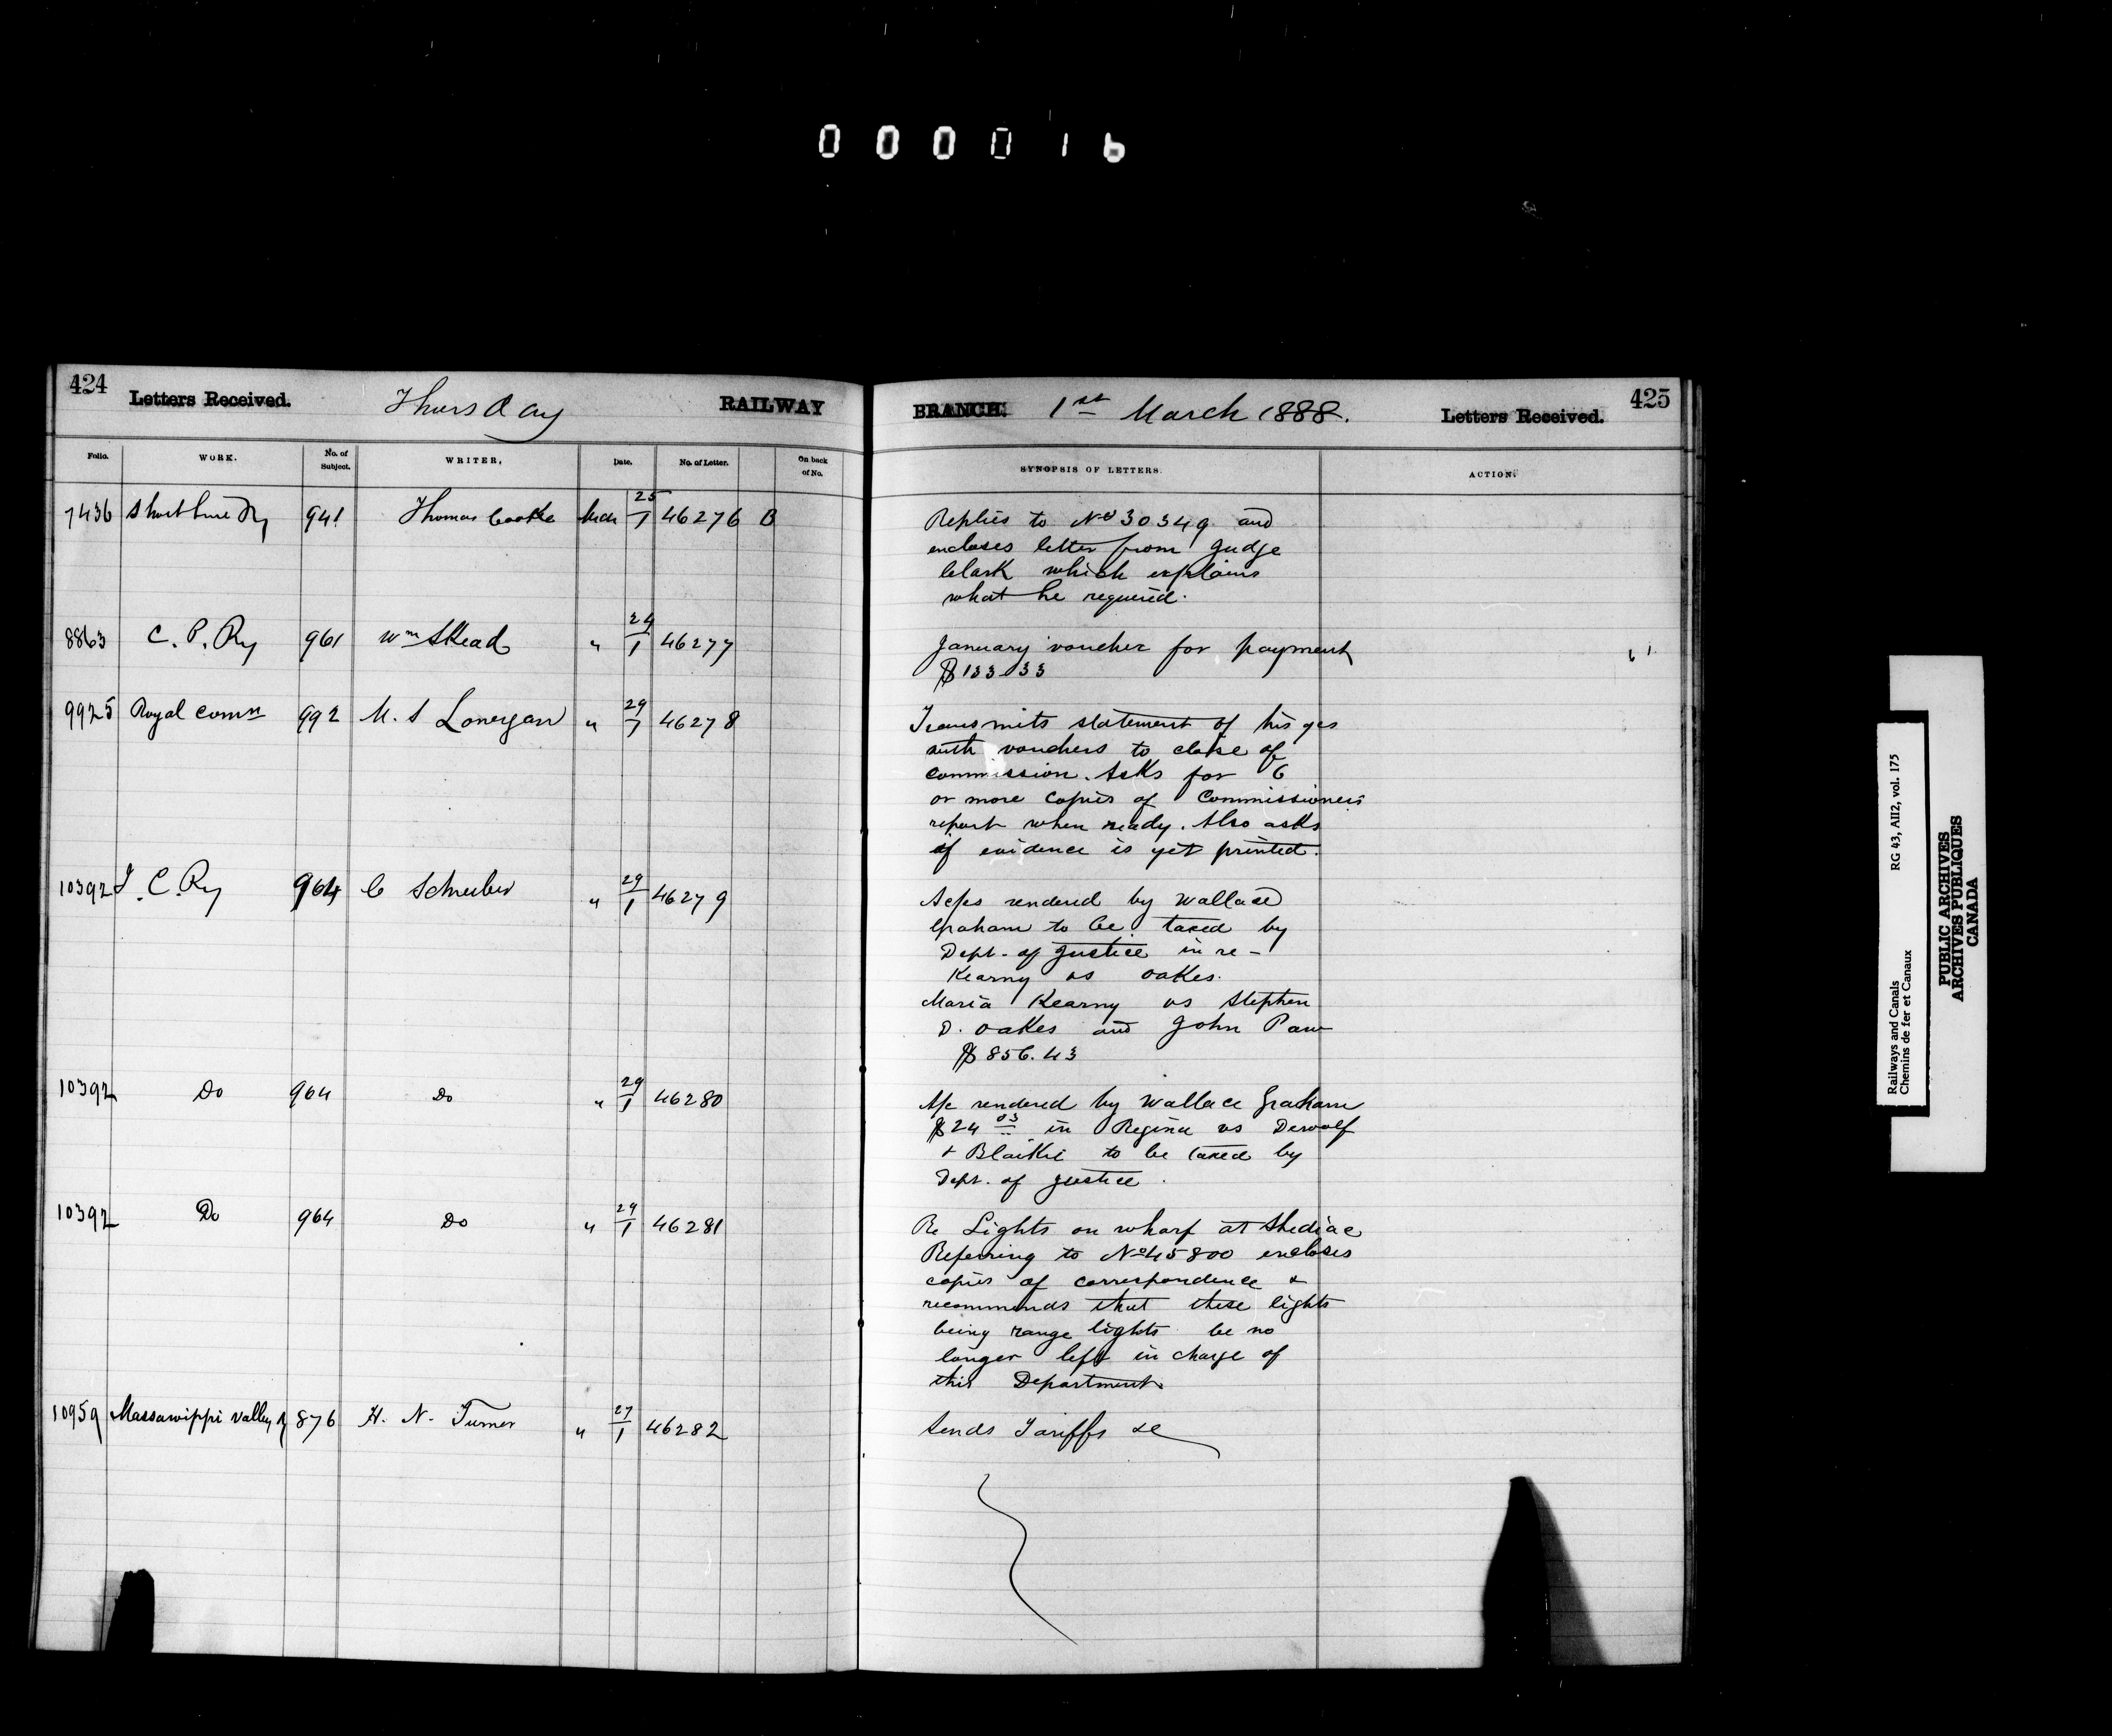 000016
424 Letters Received. Thursday RAILWAY
BRANCH. 1st March 1888. Letters Received. 425
Folio. WORK. No. of Subject. WRITER, Date. No. of Letter. On back of No.
SYNOPSIS OF LETTERS. ACTION.
7436 Short Line Ry 941 Thomas Cooke Mch 25/1 46276 B
Replies to No 30349 and
encloses letter from Judge
Clark which explains
what he required.
8863 C. P. Ry 961 Wm Skead " 29/1 46277
January voucher for payment
$133.33
9925 Royal Comn 992 M. S Lonergan " 29/7 46278
Transmits statement of his
with vouchers to close of
commission. Asks for 6
or more copies of Commissioners
report when ready. Also asks
if evidence is yet printed.
10392 I. C. Ry 964 C Schreiber " 29/1 46279
Acps rendered by Wallace
Graham to be taxed by
Dept. of Justice in re -
Kearny vs Oakes.
Maria Kearny vs Stephen
D. Oakes and John Paw
$856.43
10392 Do 964 Do " 29/1 46280
A/c rendered by Wallace Graham
$24 03 in Regina vs Dewolf
& Blaikie to be taxed by
Dept. of Justice.
10392 Do 964 Do " 29/1 46281
Re Lights on wharf at Shediac
Referring to No 45800 encloses
copies of correspondence &
recommends that these lights
being range lights be no
longer left in charge of
this Department.
10959 Massawippi Valley Ry 876 H. N. Turner " 27/1 46282
Sends Tariffs &c
Railways and Canals RG 43, AII2, vol. 175
Chemins de fer et Canaux
PUBLIC ARCHIVES
ARCHIVES PUBLIQUES
CANADA